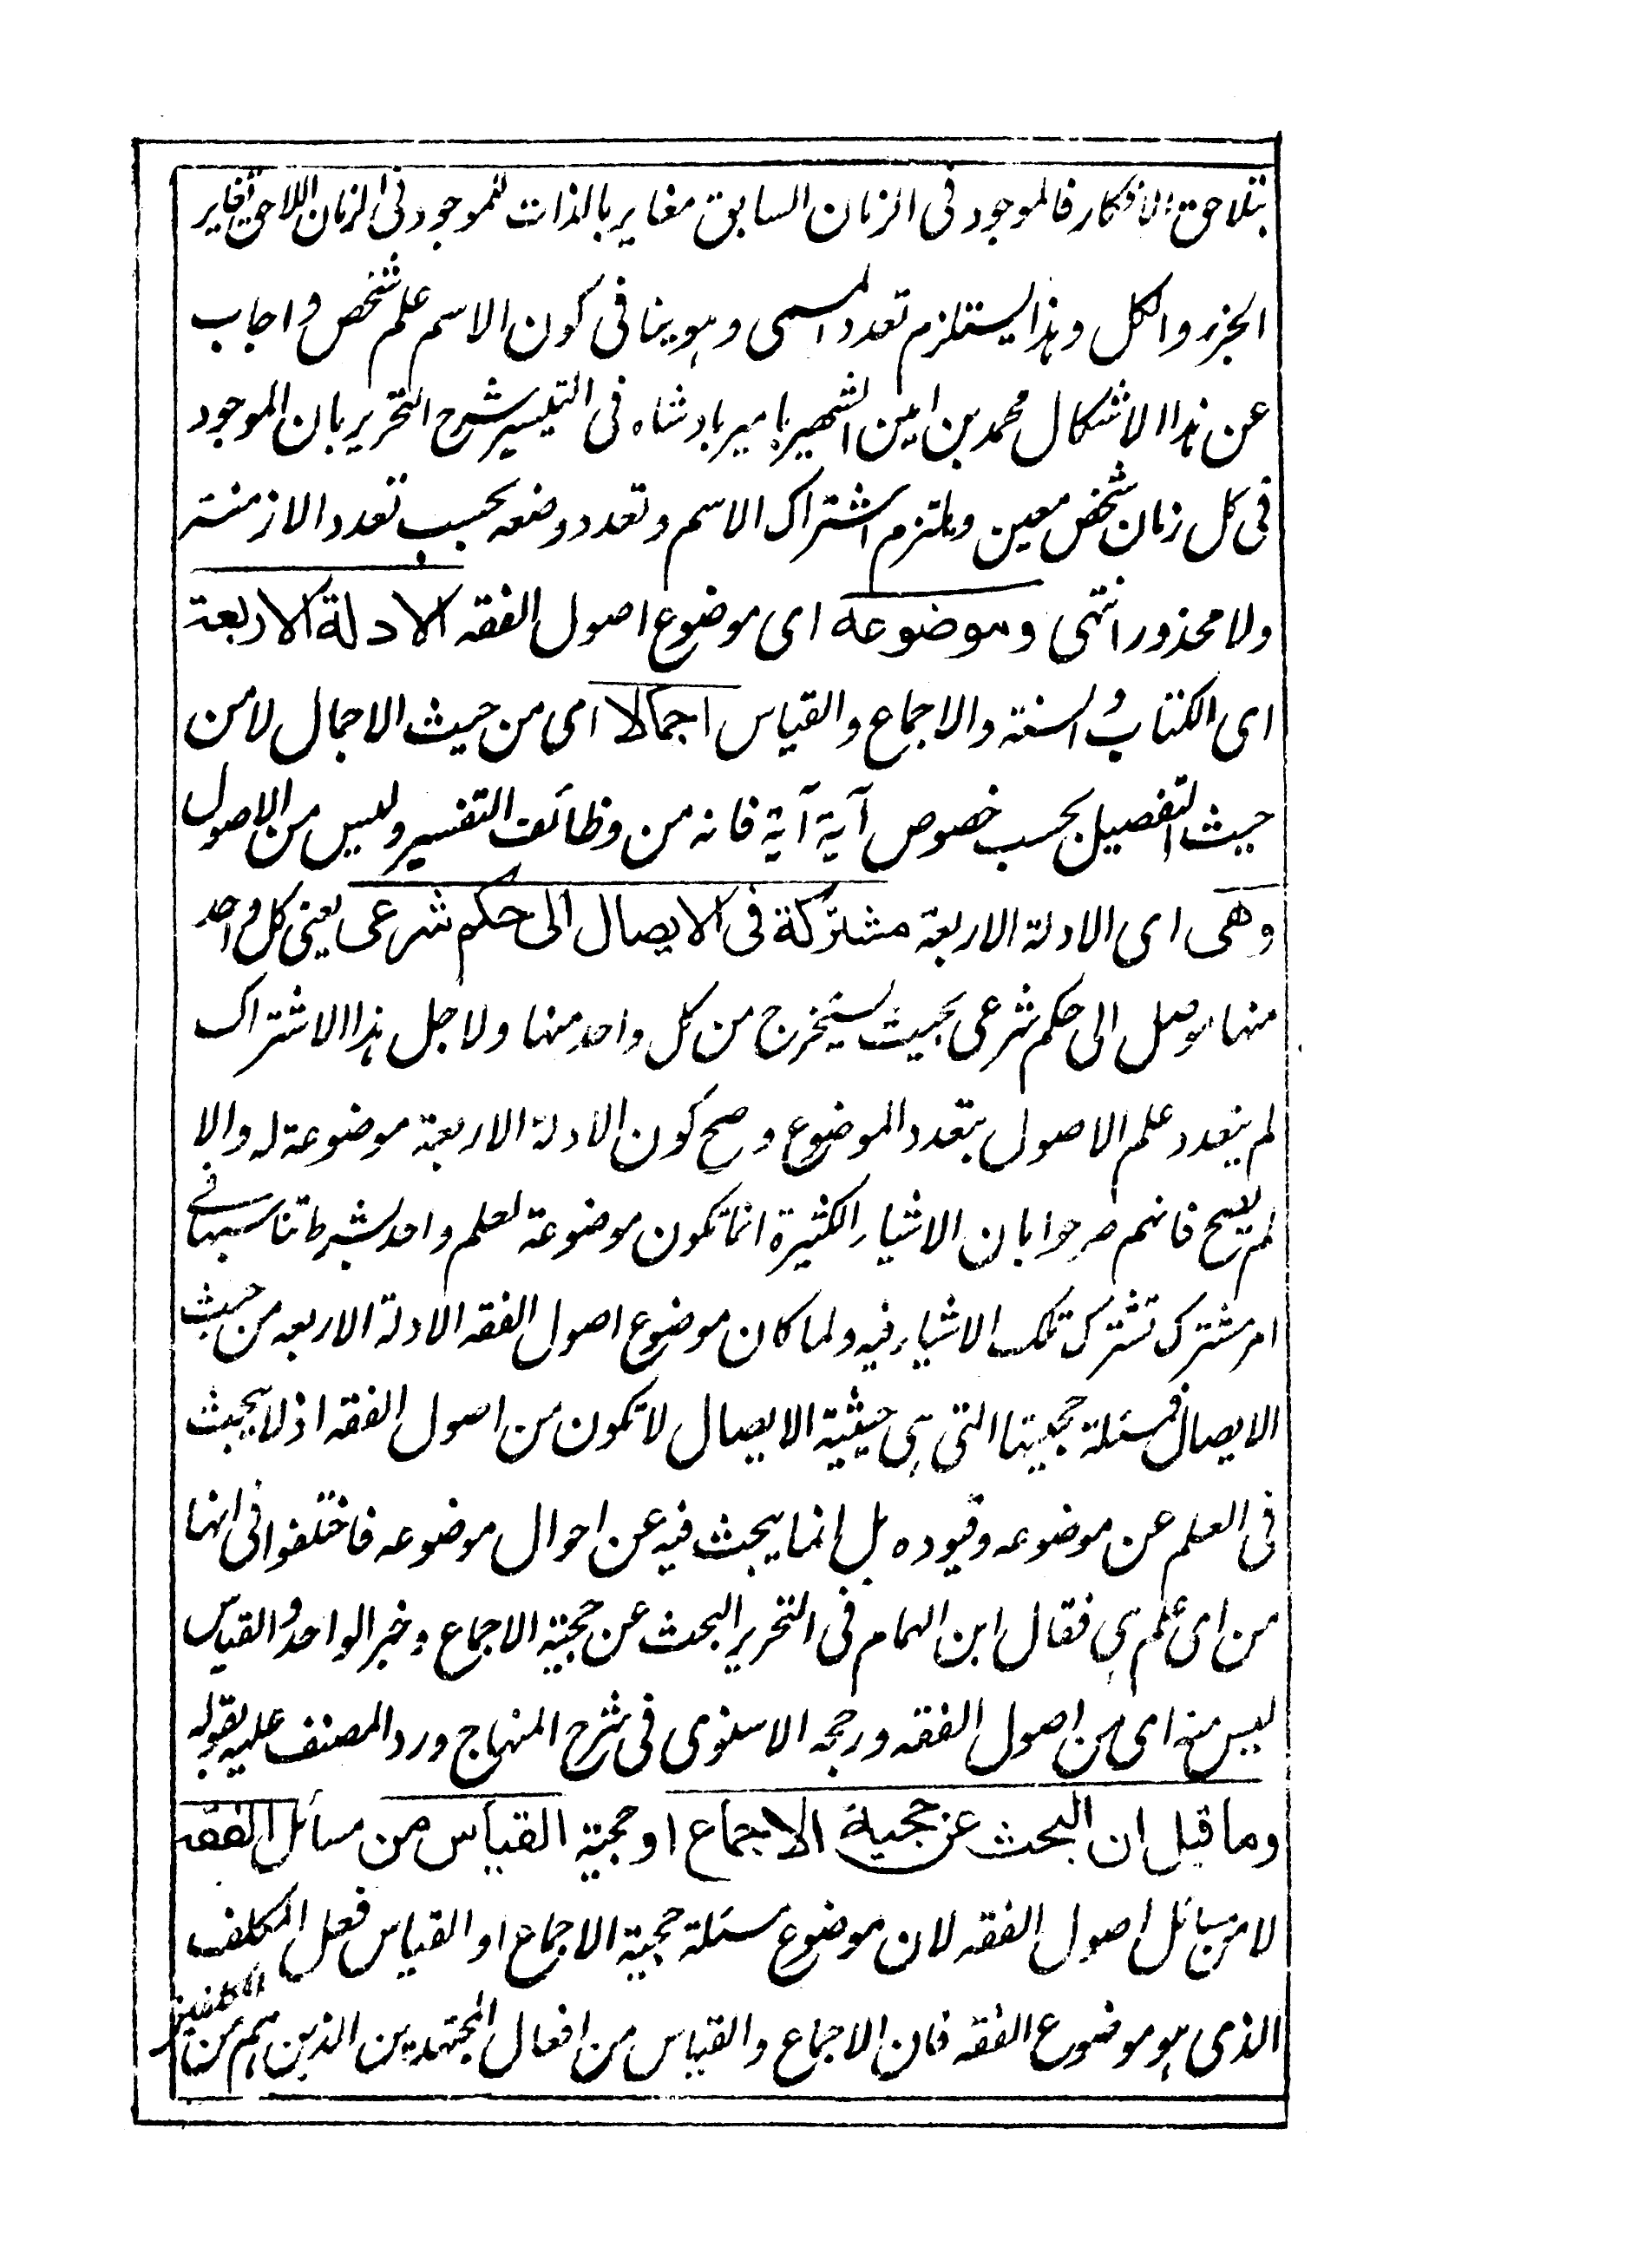 بتلاحق الافكار فالموجود فى الزمان السابق مغاير بالذات للموجود فى الزمان اللاحق تغاير
الجزء والكل وهذا يستلزم تعدد المسمى وهو ينافى كون الاسم علم شخص واجاب
عن هذا الاشكال محمد بن امين الشهير بامير بادشاه فى التيسير شرح التحرير بان الموجود
فى كل زمان شخص معين ويلتزم اشتراك الاسم وتعدد وضعه بحسب تعدد الازمنة
ولا محذور انتهى وموضوعه اى موضوع اصول الفقه الادلة الاربعة
اى الكتاب والسنة والاجماع والقياس اجمالا اى من حيث الاجمال لا من
حيث التفصيل بحسب خصوص آية آية فانه من وظائف التفسير وليس من الاصول
وهى اى الادلة الاربعة مشتركة فى الايصال الى حكم شرعى يعنى كل واحد
منها موصل الى حكم شرعى بحيث يستخرج من كل واحد منها ولاجل هذا الاشتراك
لم يتعدد علم الاصول بتعدد الموضوع وصح كون الادلة الاربعة موضوعة له والا
لم يصح فانهم صرحوا بان الاشياء الكثيرة انما تكون موضوعة لعلم واحد بشرط تناسبها فى
امر مشترك تشترك تلك الاشياء فيه ولما كان موضوع اصول الفقه الادلة الاربعه من حيث
الايصال فمسئلة حجيتها التى هى حيثية الايصال لا تكون من اصول الفقه اذ لا يبحث
فى العلم عن موضوعه وقيوده بل انما يبحث فيه عن احوال موضوعه فاختلفوا فى انها
من اى علم هى فقال ابن الهمام فى التحرير البحث عن حجية الاجماع وخبر الواحد والقياس
ليس منه اى من اصول الفقه ورجحه الاسنوى فى شرح المنهاج ورد المصنف عليه بقوله
وما قيل ان البحث عن حجية الاجماع او حجية القياس من مسائل الفقه
لا من مسائل اصول الفقه لان موضوع مسئلة حجية الاجماع او القياس فعل المكلف
الذى هو موضوع الفقه فان الاجماع والقياس من افعال المجتهدين الذين هم من المكلفين